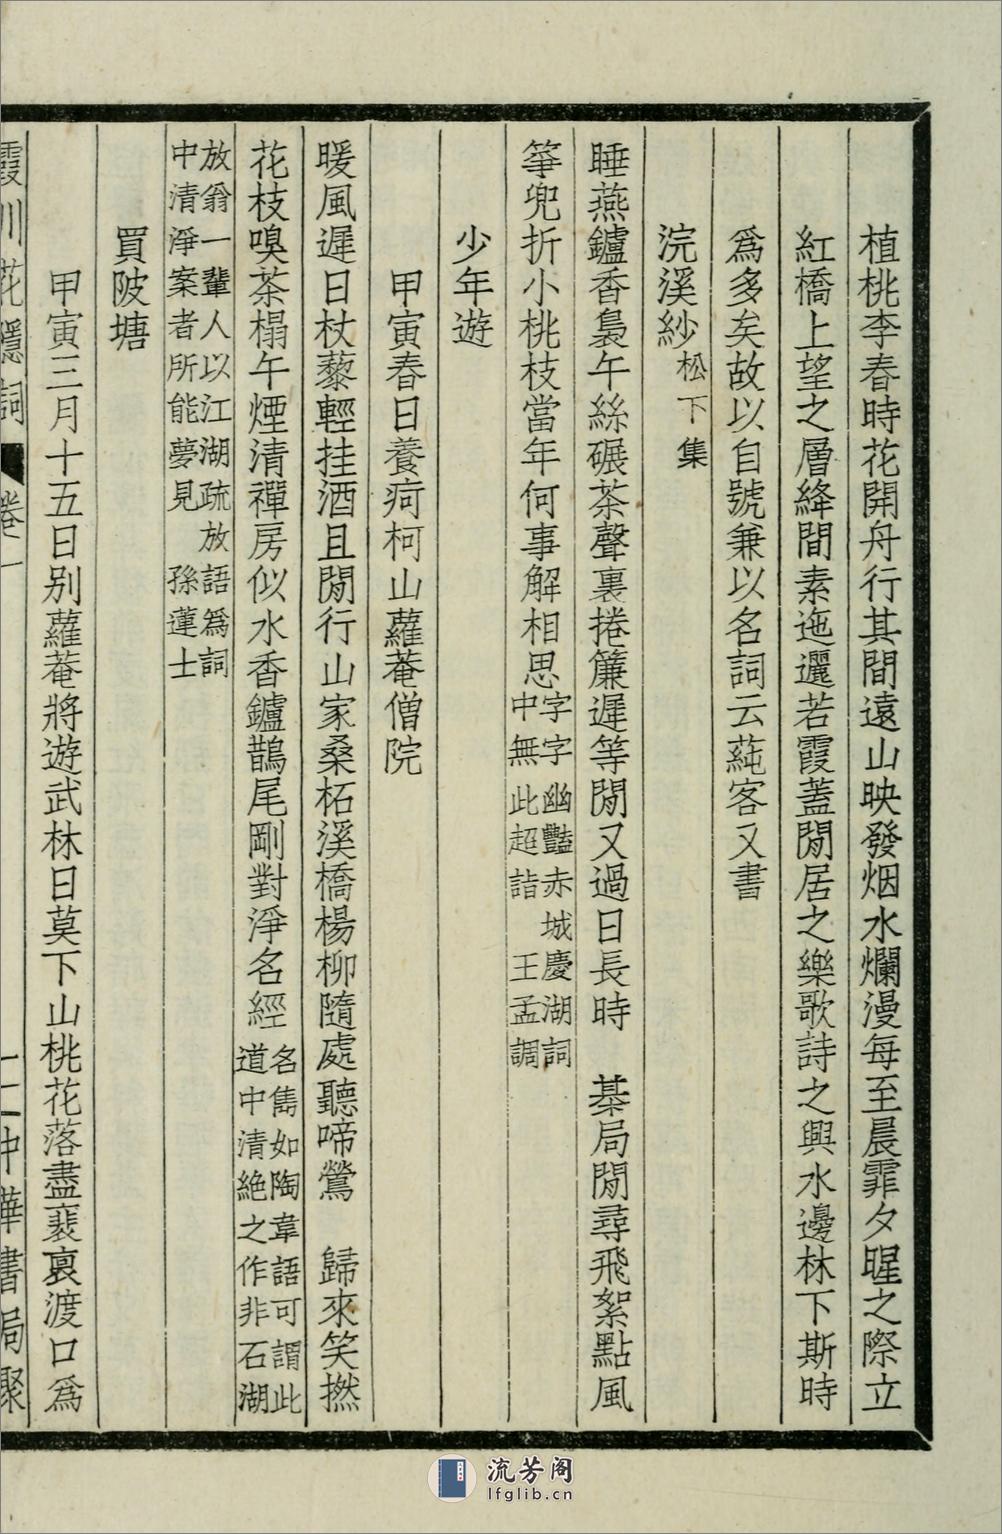 植桃李春時花開舟行其間遠山映發烟水爛漫每至晨霏夕暒之際立
紅橋上望之層絳間素迤邐若霞蓋閒居之樂歌詩之興水邊林下斯時
爲多矣故以自號兼以名詞云蒓客又書
浣溪紗 松下集
睡燕鑪香裊午絲碾茶聲裏捲簾遲等閒又過日長時 棊局閒尋飛絮點風
箏兜折小桃枝當年何事解相思 字字幽豔赤城慶湖詞
中無此超詣 王孟調
少年遊
甲寅春日養疴柯山蘿菴僧院
暖風遲日杖藜輕挂酒且閒行山家桑柘溪橋楊柳隨處聽啼鶯 歸來笑撚
花枝嗅茶榻午煙清禪房似水香鑪鵲尾剛對淨名經 名雋如陶韋語可謂此
道中清絶之作非石湖
放翁一輩人以江湖疏放語爲詞
中清淨案者所能夢見 孫蓮士
買陂塘
甲寅三月十五日别蘿菴將遊武林日莫下山桃花落盡裵裒渡口爲
霞川花隱詞 卷一 一一中華書局聚
流芳阁
lfglib.cn